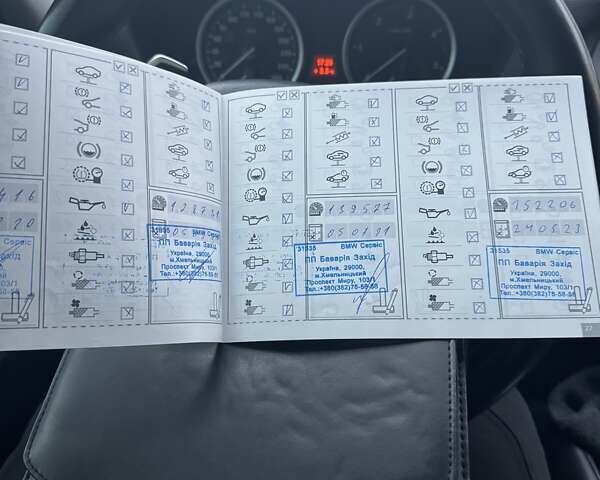 17:09
+8.0°c
416
20
128731
31535 BMW Сервіс
ПП Баварія Захід
Україна, 29000,
м.Хмельницький
Проспект Миру, 103/1
Тел.:+380(382)78-58-58
139527
050191
31535 BMW Сервіс
ПП Баварія Захід
Україна, 29000,
м.Хмельницький,
Проспект Миру, 103/1
Тел.:+380(382)78-58-58
152206
240523
31535 BMW Сервіс
ПП Баварія Захід
Україна, 29000,
м.Хмельницький,
Проспект Миру, 103/1
Тел.:+380(382)78-58-58
27